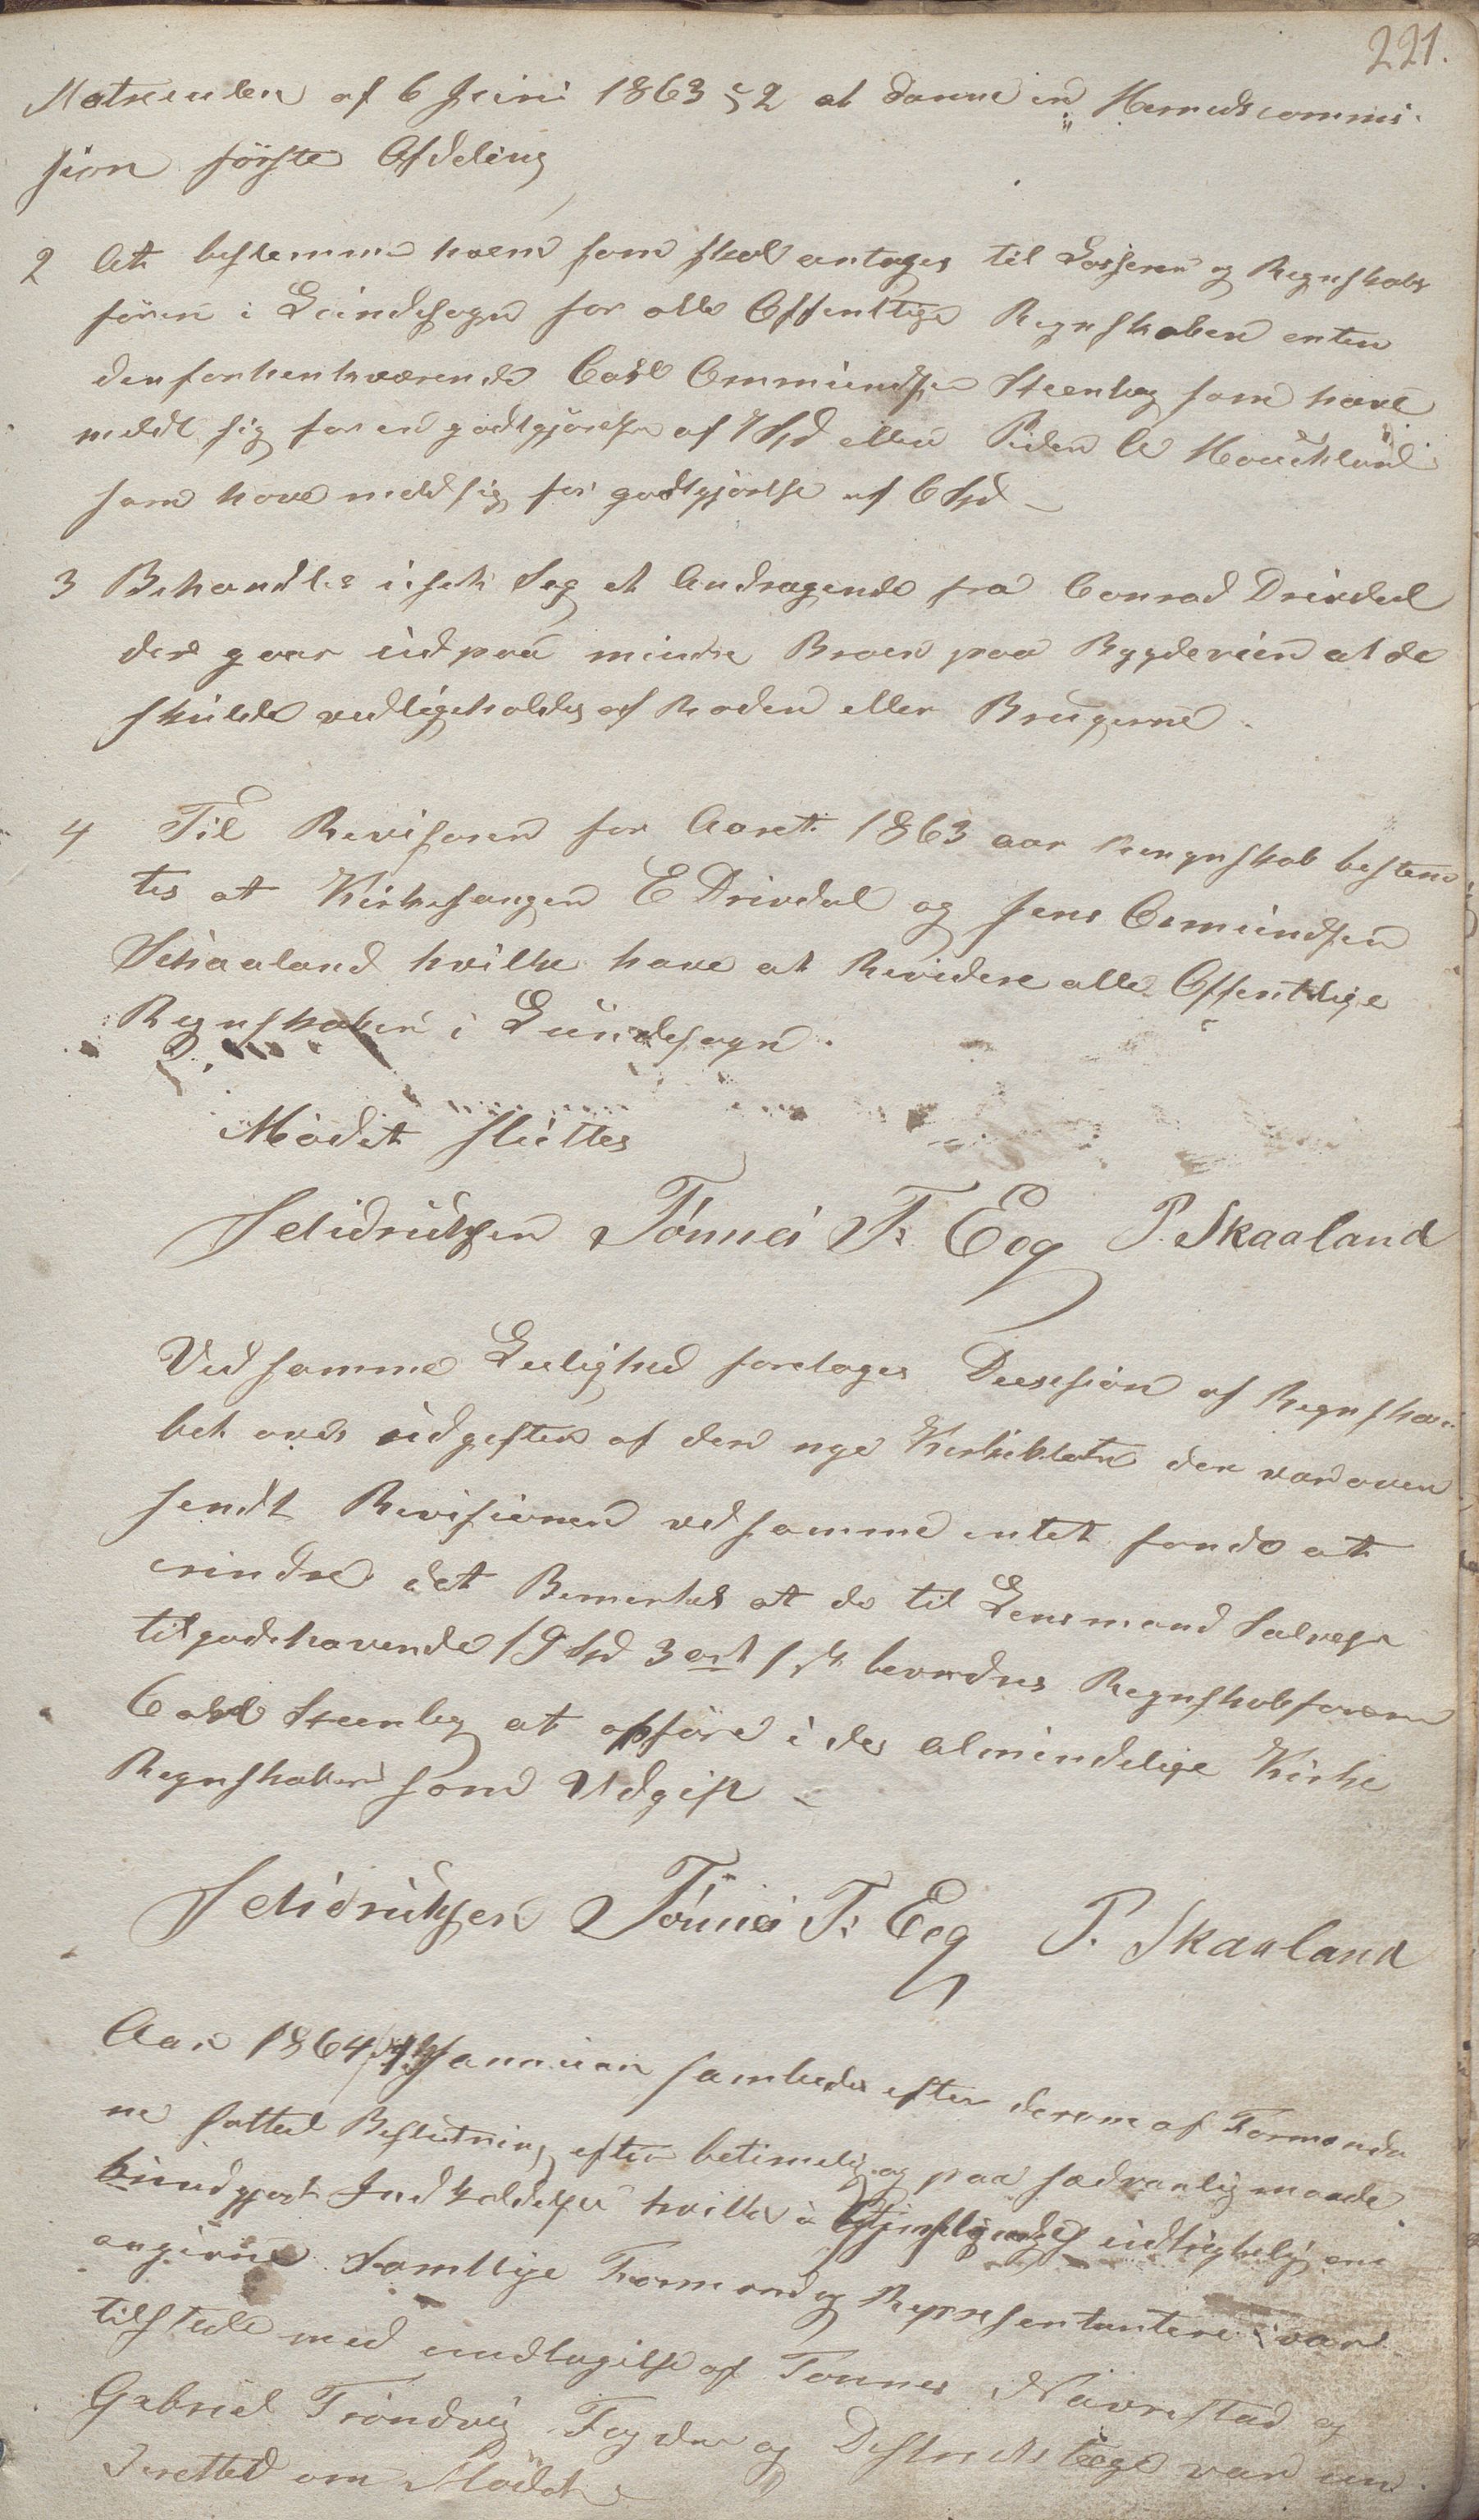 221.
Matreculen af 6 Juni 1863 § 2 at danne en Herredscommis-
sion første Afdeling
2 At bestemme hvem som skal antages til Kasserer og Regnskabs
fører i Lundesogn for alle Offentlige Regnskaber enten
den forhenhværende Carl Ommundsen Steenberg som have
meldt sig for en godtgjørelse af 7 Spd eller Peder A Houkland
som have meldt sig for godtgjørelse af 6 Spd –
3 Behandles i sets Sag et Andragende fra Conrad Drivdal
der gaar ud paa mindre Broer paa Bygdeveien at de
skulde vedligeholdes af Roden eller Brugerne.
4 Til Revisorer for Aaret 1863 aar Rengnskab bestem
tes at Kirkesanger E Drivdal og Jens Osmundsen
Skaaland hvilke have at Revidere alle Offentlige
Regnskaber i Lundesogn.
Mødet sluttes
S Hidriksen Tønnes T. Eeg P. Skaaland
Ved samme Leilighed foretoges Decesion af Regnska-
bet over udgifter af den nye Kirkeklokke der var over
sendt Revisionen ved samme intet fandt at
erindre det Bemerkes at de til Lensmand Salvesen
tilgodehavende 19 Spd 3 ort 1 sk beordres Regnskabsføreren
Carl Steenberg at opføre i des almindelige Kirke
Regnskaber som Udgift –
S Hidriksen Tønnes T. Eeg P. Skaaland
Aar 1864 Januar samledes efter derom af Formænde
ne fattet Beslutning efter betimelig og paa sædvanlig maade
kundgjort Indkaldelse hvilke udtrykkelig er
angivne Samtlige Formænd og Representantere var
tilstede med undtagelse af Tønnes Nävrestad og
Gabriel Trøndvig Fogden og Destrectslæge var un
derettet om Mødet